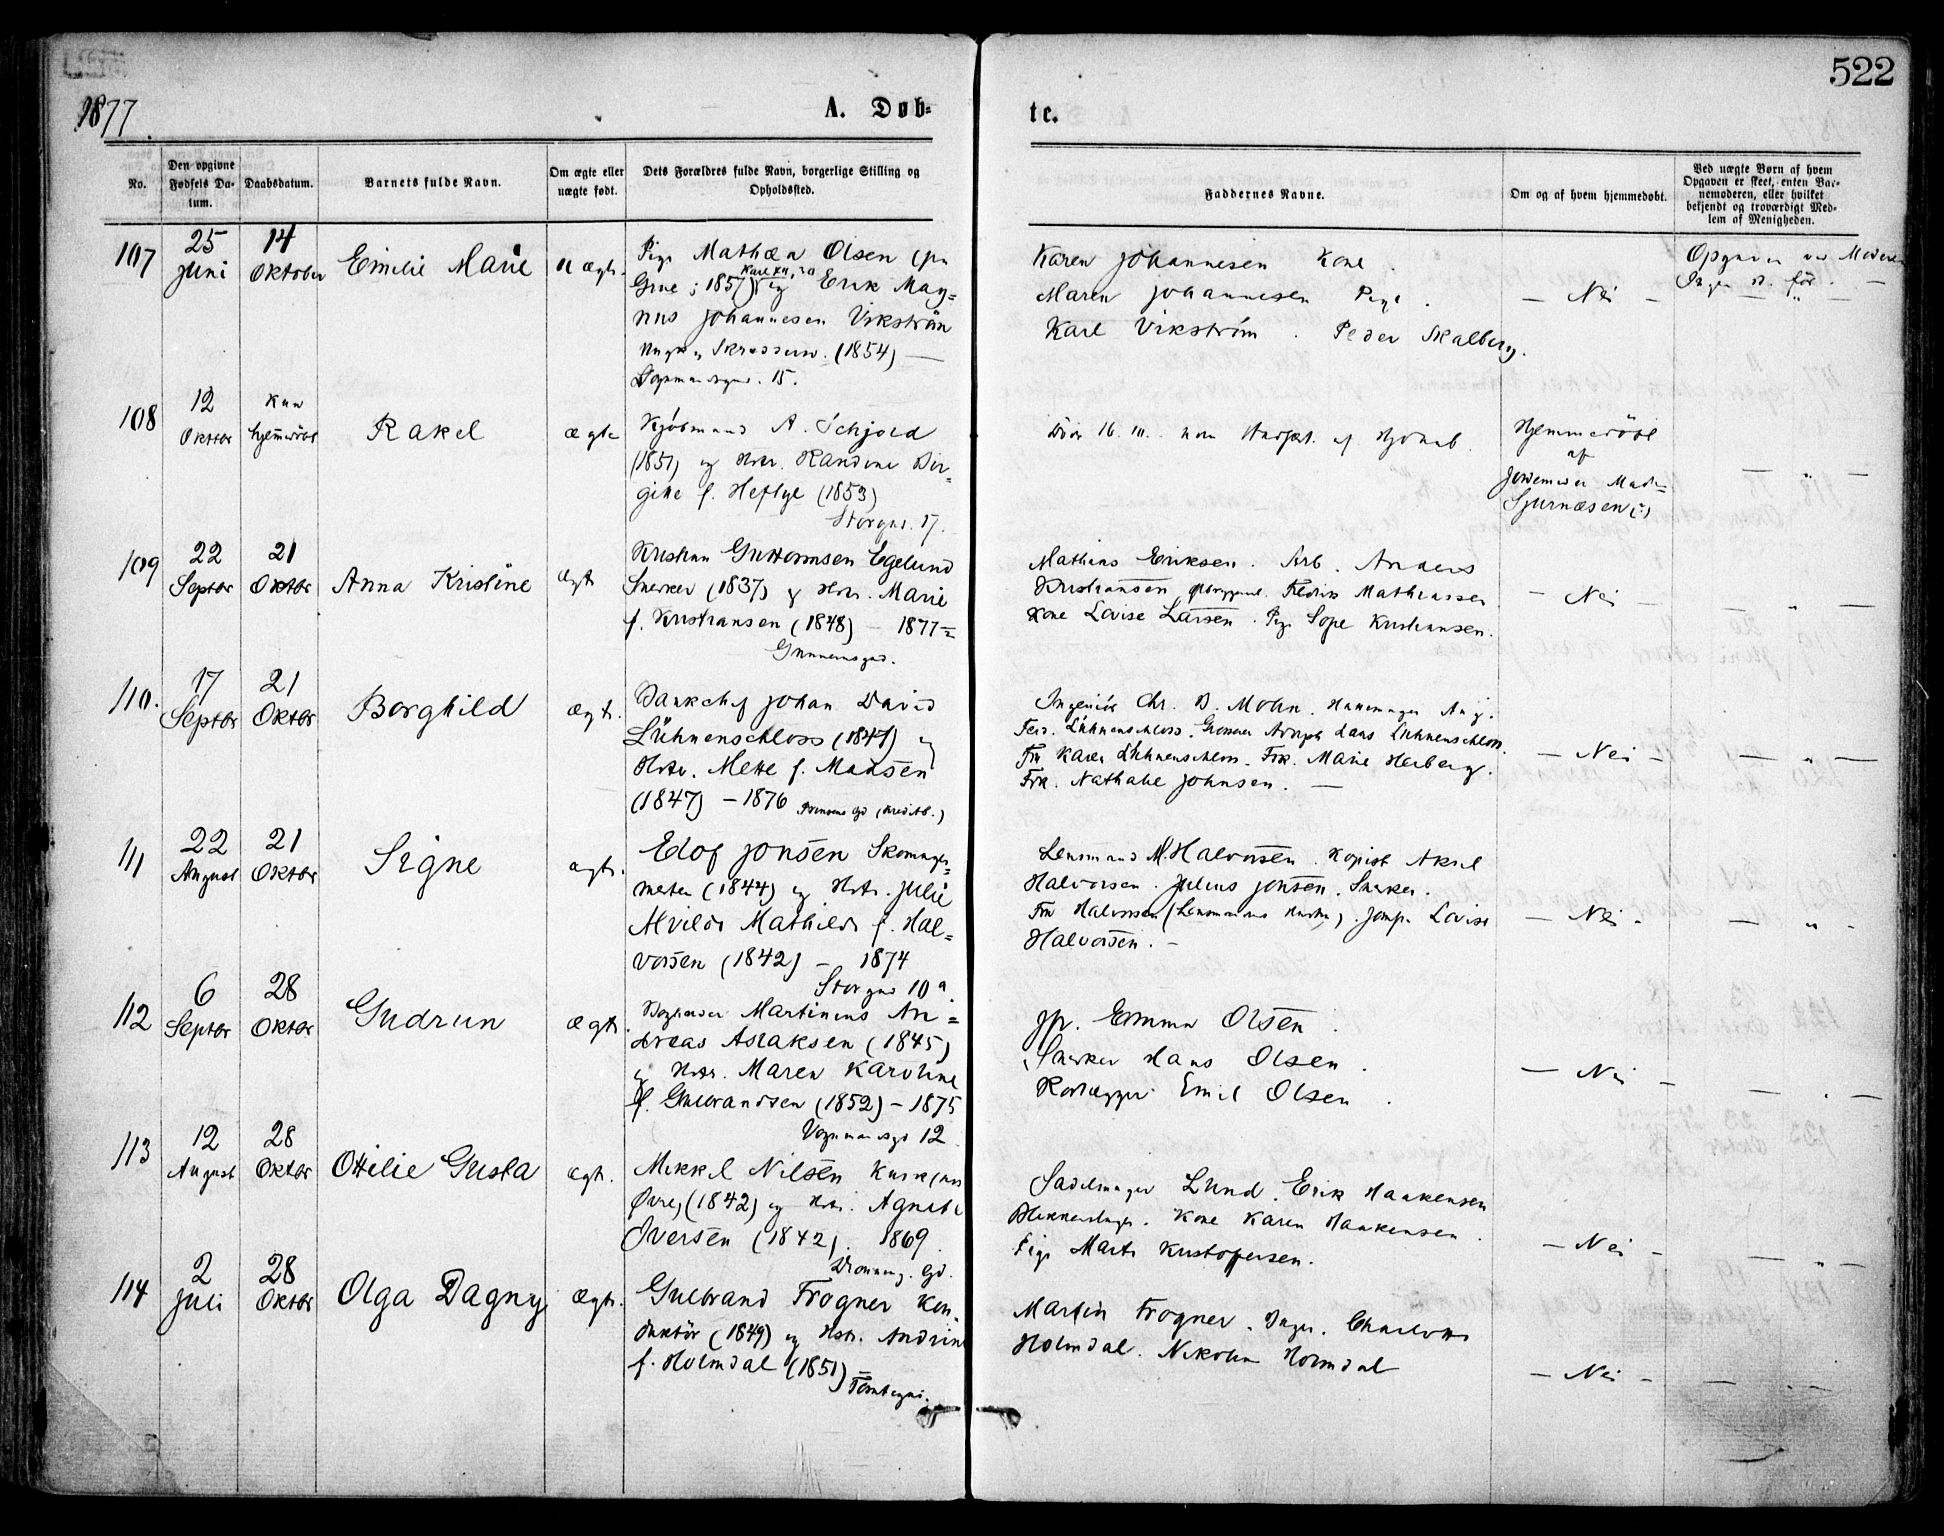 522
1877
A. Døb-
te.
No.
Den opgivne Fødsels Da-tum.
Daabsdatum.
Barnets fulde Navn.
Om ægte eller uægte født.
Dets Forældres fulde Navn, borgerlige Stilling og Opholdssted.
Faddernes Navne.
Om og af hvem hjemmedøbt.
Ved uægte Børn af hvem Opgaven er skeet, enten Bar-nemoderen, eller hvilket bekjendt og troværdigt Med-lem af Menigheden.
107
25 Juni
14 Oktober
Emilie Marie
Pige Mathea Olsen
1857) og Erik Mag=
nus Johannesen Vikström
(1854) —
15.
Karen Johannesen Kone
Maren Johannesen Pige.
Karl Vikström. Peder Skalberg.
— Nei —
108
12 Oktbr
Kun hjemmedöbt
Rakel
ægte
Kjøbmand A. Schjold
(1851) og Hstr. Randine Bir=
gitte f. Heftye (1853)
Storgd. 17.
Hjemmedöbt
af
Jordemoder
109
22 Septbr
21 Oktbr
Anna Kristine
ægt
Kristian Guttormsen Egelund
Snerker (1837) og Hstr. Marie
f. Kristiansen (1848) — 1877
Mathias Eriksen. Arb. Anders
Kristiansen Fredrik Mathiassen
Kone Lovise Larsen. Pige Sofie Kristiansen.
— Nei —
110.
17 Septbr
21 Oktbr
Borghild
ægt.
Bankchef Johan David
Lühnenschloss (1841) og
Hstr. Mette f. Madsen
(1847) — 1876 Prinsens Gd (Kreditb.)
Ingeniör Chr. B. Mohn.
Ferd. Lühnenschloss. Grosserer Lühnenschloss.
Fru Karen Lühnenschloss. Frk. Marie Herberg.
Frk. Nathalie Johnsen. —
— Nei —
111
22 August
21 Oktbr
Signe
ægt.
Edof Jonsen Skomager=
mester (1844) og Hstr. Julie
Alvilde Mathilde f. Hal=
vorsen (1842) — 1874
Storgd 10 a.
Lensmand M. Halvorsen. Kopist Aksel
Halvorsen. Julius Jonsen. Snerker.
Fru Halvorsen (Lensmands Hustru). Jomfr. Lovise
Halvorsen. —
— Nei —
112
6 Septbr
28 Oktbr
Gudrun
ægt.
Bogholder Martinius An=
dreas Aslaksen (1845)
og Hstr. Maren Karoline
f. Gulbrandsen (1852) — 1875
Vognmandsgd 12
Jfr. Emma Olsen.
Snerker Hans Olsen.
Emil Olsen.
— Nei —
113
12 August
28 Oktbr
Ottilie Gusta
ægt.
Mikkel Nilsen
(1842) og Hstr. Agnete
Iversen (1842). 1869.
Dronning. Gd.
Sadelmager Lund. Erik Haakensen
Blikkenslager. Kone Karen Haakensen.
Pige Marte Kristofersen.
— Nei —
114
2 Juli
28 Oktbr
Olga Dagny
ægt.
Gulbrand Frogner Kon=
duktör (1849) og Hstr. Andrine
f. Holmdal (1851)
Martin Frogner. Charlotte
Holmdal. Nikolai Holmdal
— Nei —